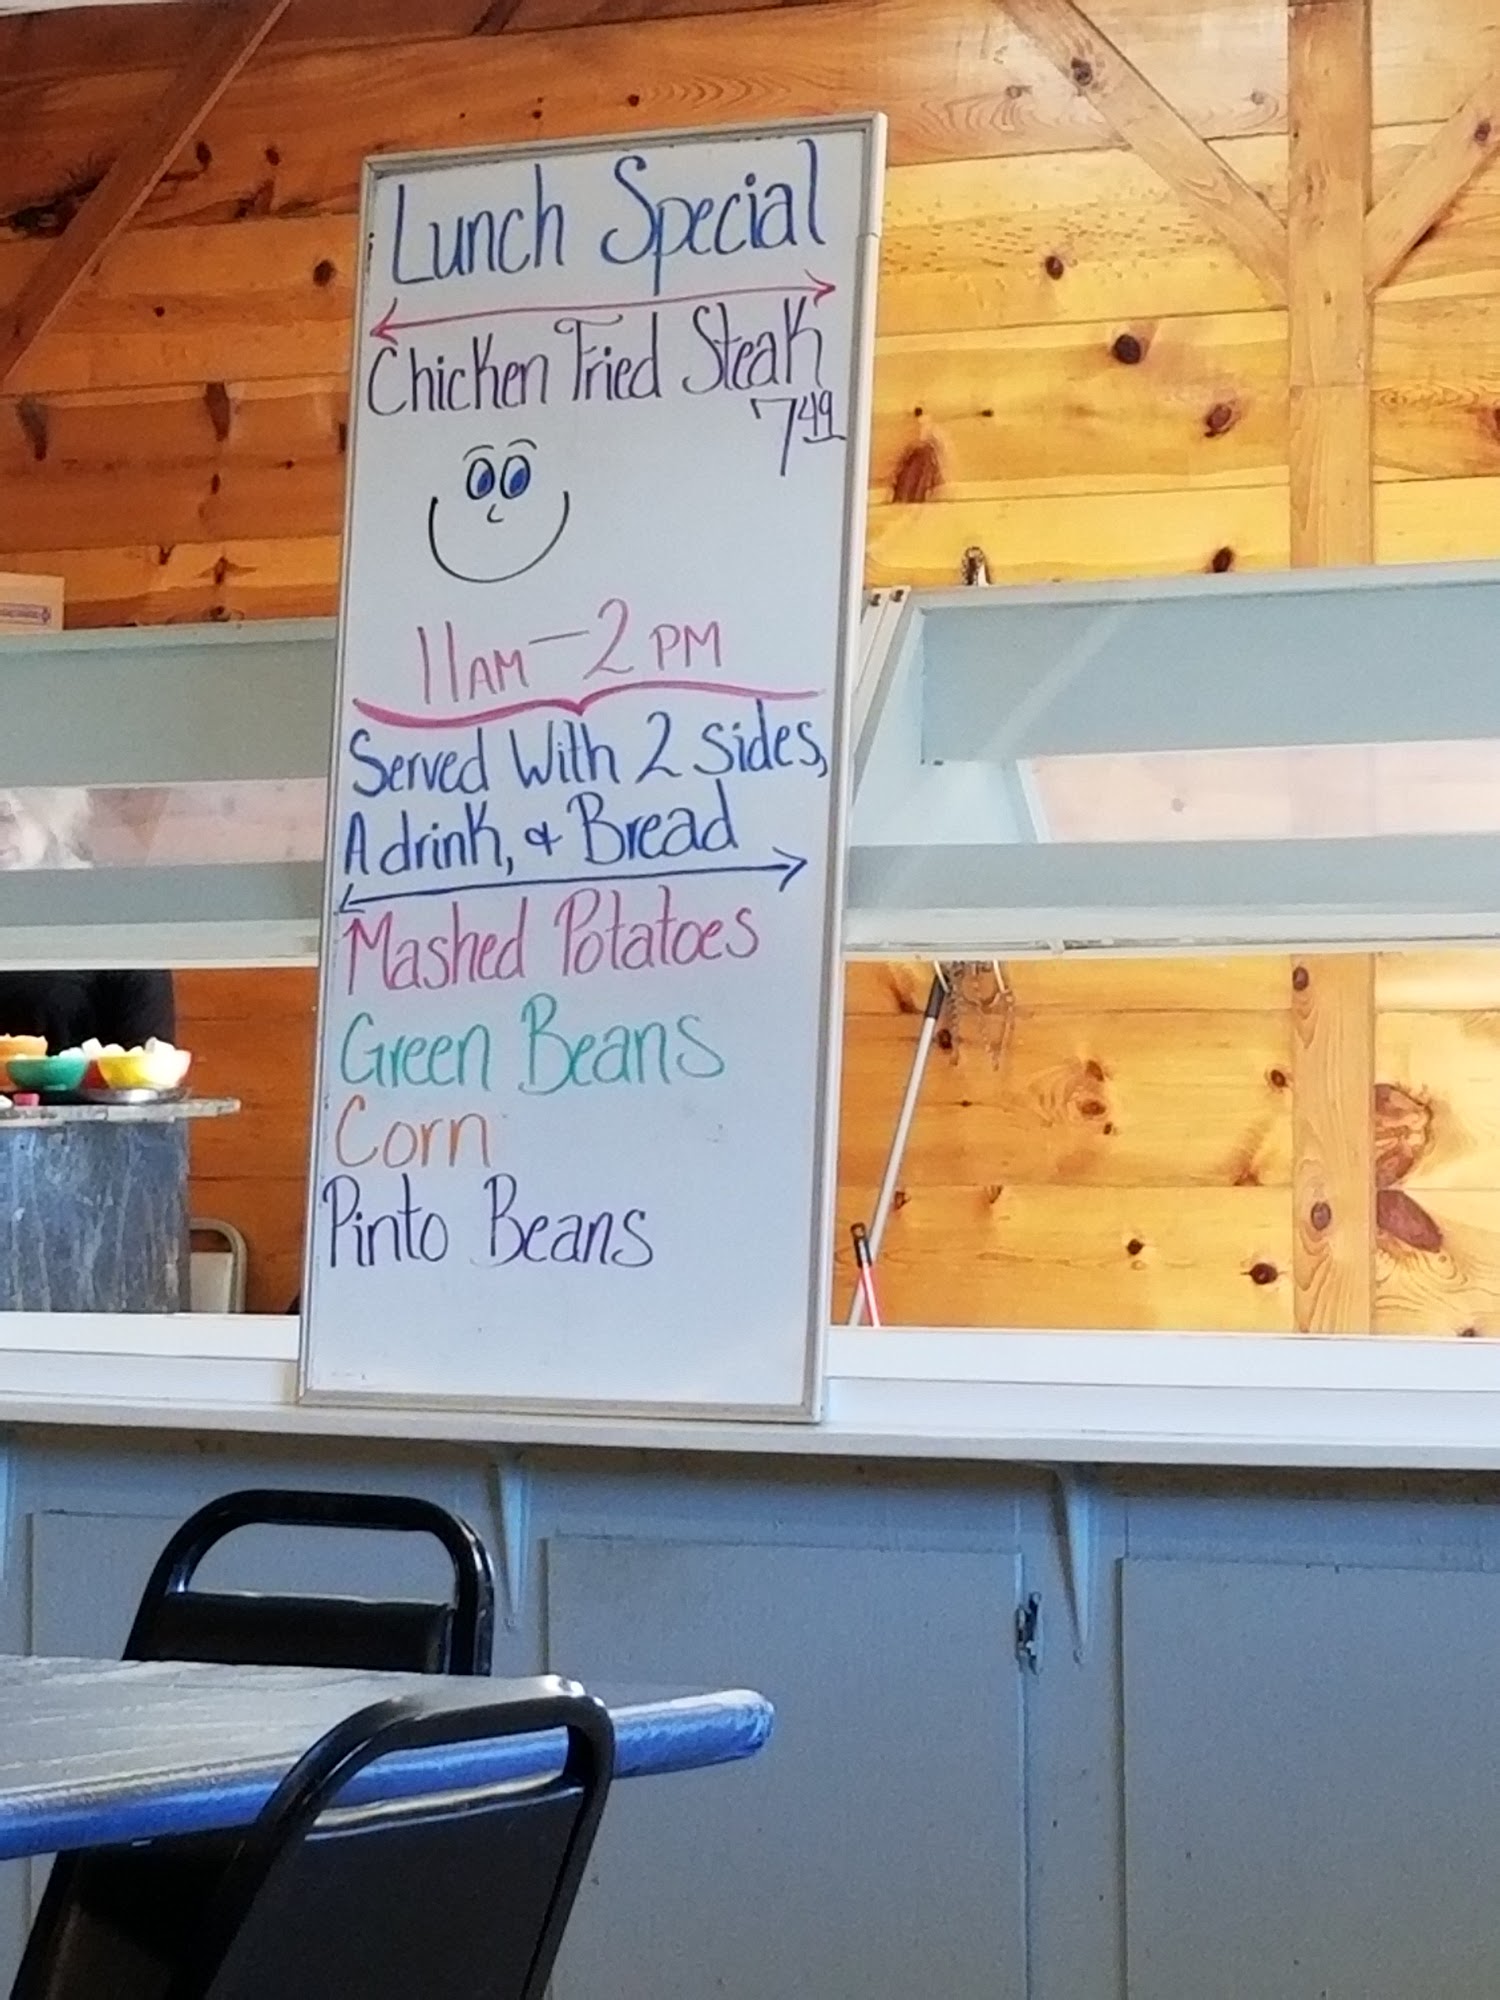 Lunch Special
Chicken Fried Steak
7 49
11AM — 2 PM
Served With 2 Sides,
A drink, & Bread
Mashed Potatoes
Green Beans
Corn
Pinto Beans